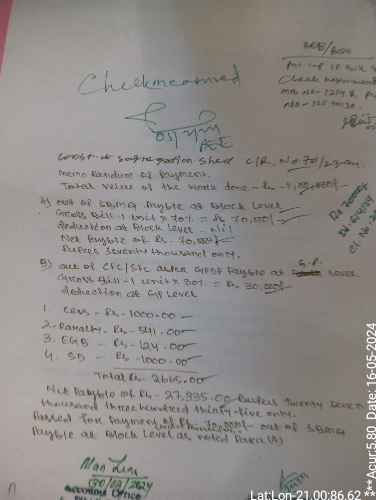 Checkmeasured
Const. of segregation shed C/R. No 70/23-24
Memo Randum of Payment.
Total value of the work done - Rs - 1,00,000/-
A) out of SBMG Payble at Block Level
Gross Bill - 1 Unit x 70% = Rs 70,000/-
deduction at Block Level - Nil
Net Payble of Rs - 70,000/-
Rupees seventy thousand only.
B) out of CFC/SFC GPDP Payble at G.P. Level
Gross Bill - 1 Unit x 30% = Rs 30,000/-
deduction at GP Level
1. Cess - Rs - 1000.00
2. Royalty - Rs - 541.00
3. EGB - Rs - 124.00
4. SD - Rs - 1000.00
Total Rs - 2665.00
Net Payble of Rs - 27,335.00 Rupees twenty seven
thousand three hundred thirty five only.
Passed for Payment of Rs 70,000/- out of SBMG
Payble at Block Level as noted Para (A)
30/03/2024
Accounts Officer
Lat:Lon-21.00:86.62
***Acur:5.80 Date: 16-05-2024